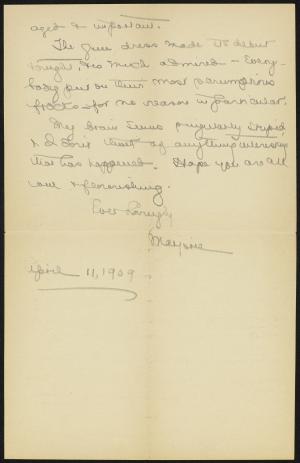 aged & important.
The green dress made its debut
tonight, & so much admired - Every-
body put on their most sumptuous
frocks - for no reason in particular.
My brain seems singularly stupid
& I don't think of anything interesting
that has happened. Hope you are all
well & flourishing.
Ever lovingly
Marjorie
April 11, 1909